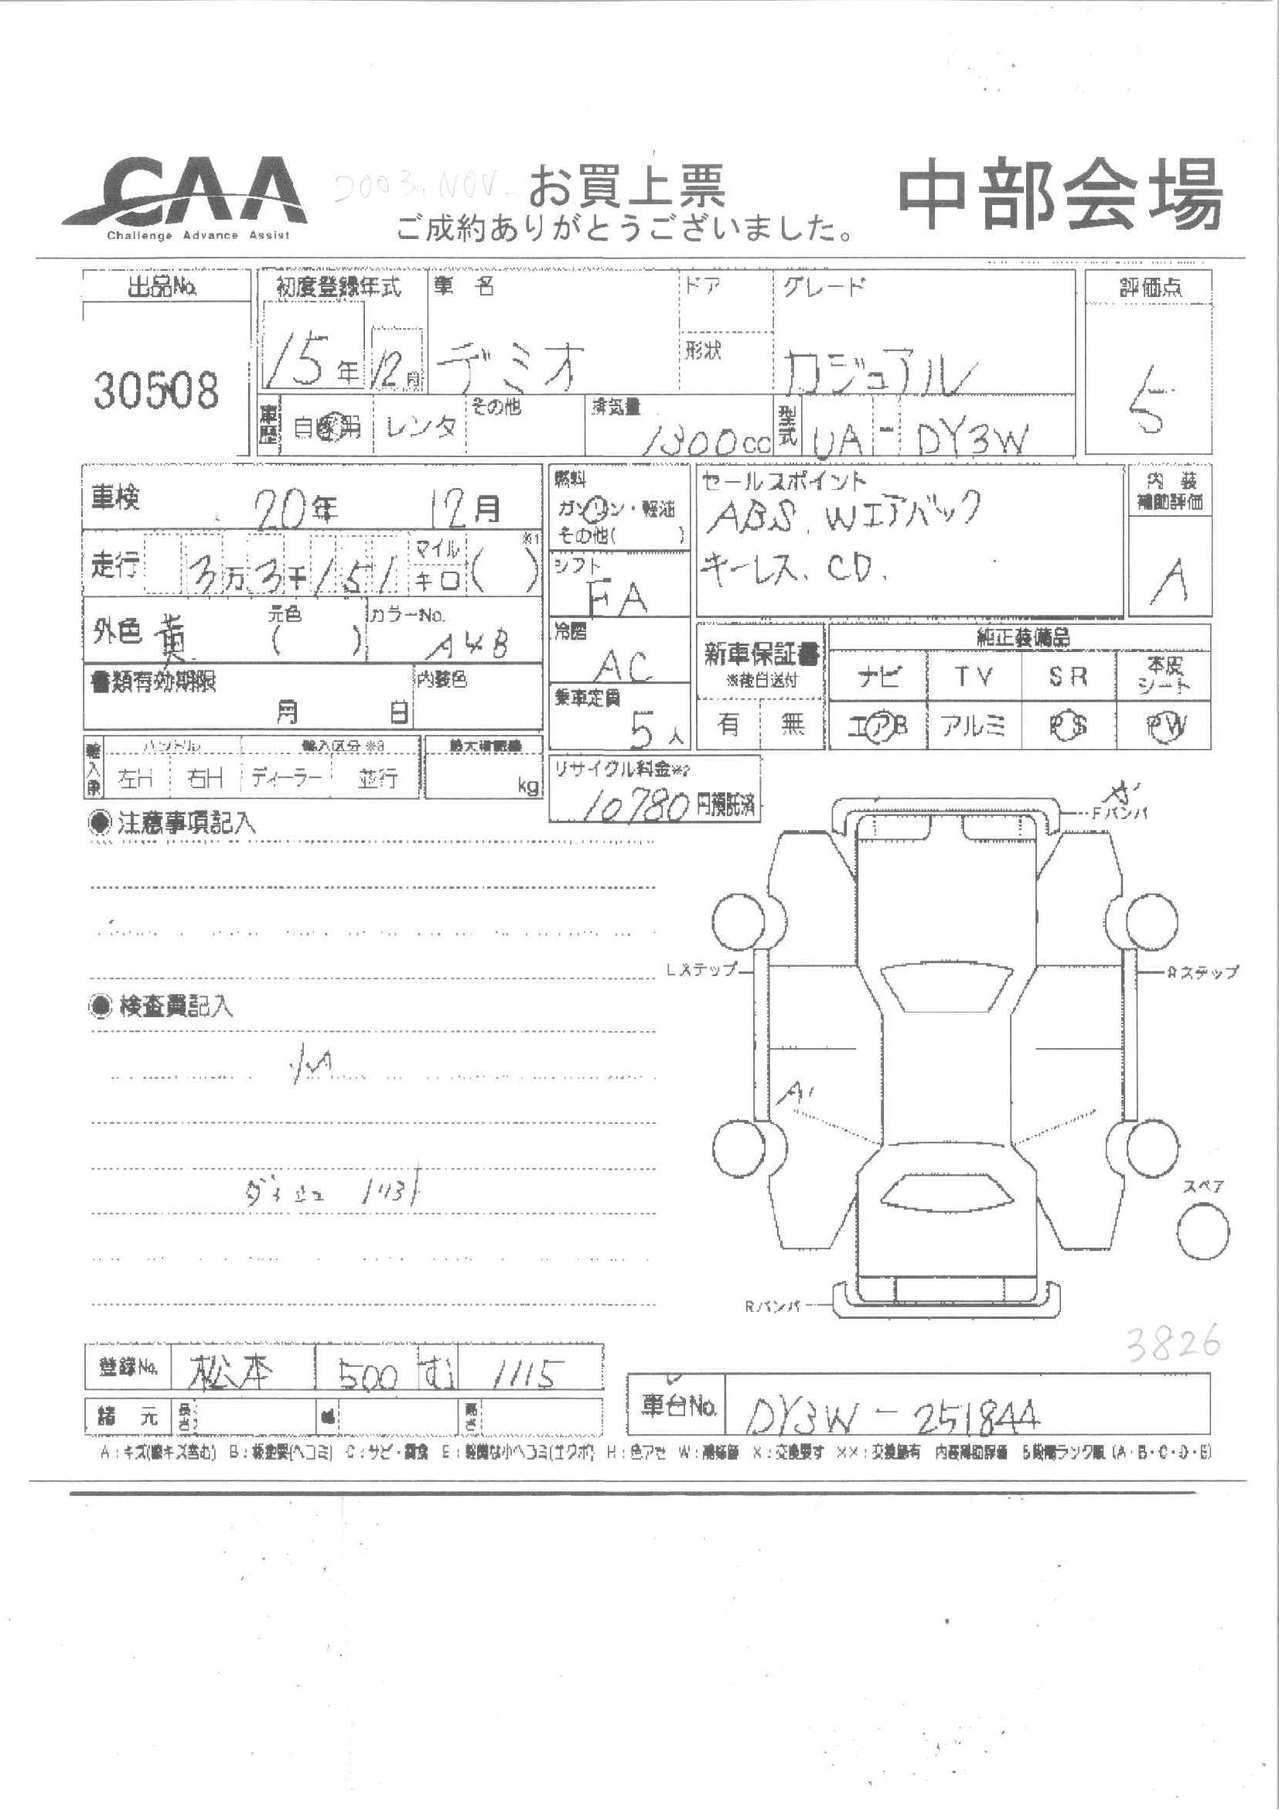 CAA
Challenge Advance Assist
2003. NOV.
お買上票
中部会場
ご成約ありがとうございました。
出品No.
30508
初度登録年式
15年 12月
車名
デミオ
ドア
形状
グレード
カジュアル
評価点
5
車歴
自家用 レンタ その他
排気量
1300cc
型式
UA - DY3W
車検 20年 12月
走行 3万3千151 マイル キロ ( ) ※1
外色 黄 元色 ( ) カラーNo. A4B
書類有効期限 月 日
内装色
燃料
ガソリン・軽油
その他( )
シフト
FA
冷房
AC
乗車定員
5人
セールスポイント
ABS. Wエアバック
キーレス. CD.
内装補助評価
A
新車保証書
※後日送付
有 無
純正装備品
ナビ TV SR 本皮シート
エアB アルミ PS PW
輸入車
ハンドル 輸入区分※3
左H 右H ディーラー 並行
最大積載量
kg
リサイクル料金※2
10780円預託済
◉ 注意事項記入
◉ 検査員記入
Fバンパ
Lステップ
Rステップ
A'
スペア
Rバンパ
3826
登録No. 松本 500 む 1115
諸元 長さ 幅 高さ
車台No. DY3W - 251844
A：キズ(線キズ含む) B：板金要(ヘコミ) C：サビ・腐食 E：軽微な小ヘコミ(エクボ) H：色アセ W：補修跡 X：交換要す XX：交換跡有 内装補助評価 5段階ランク順 (A・B・C・D・E)